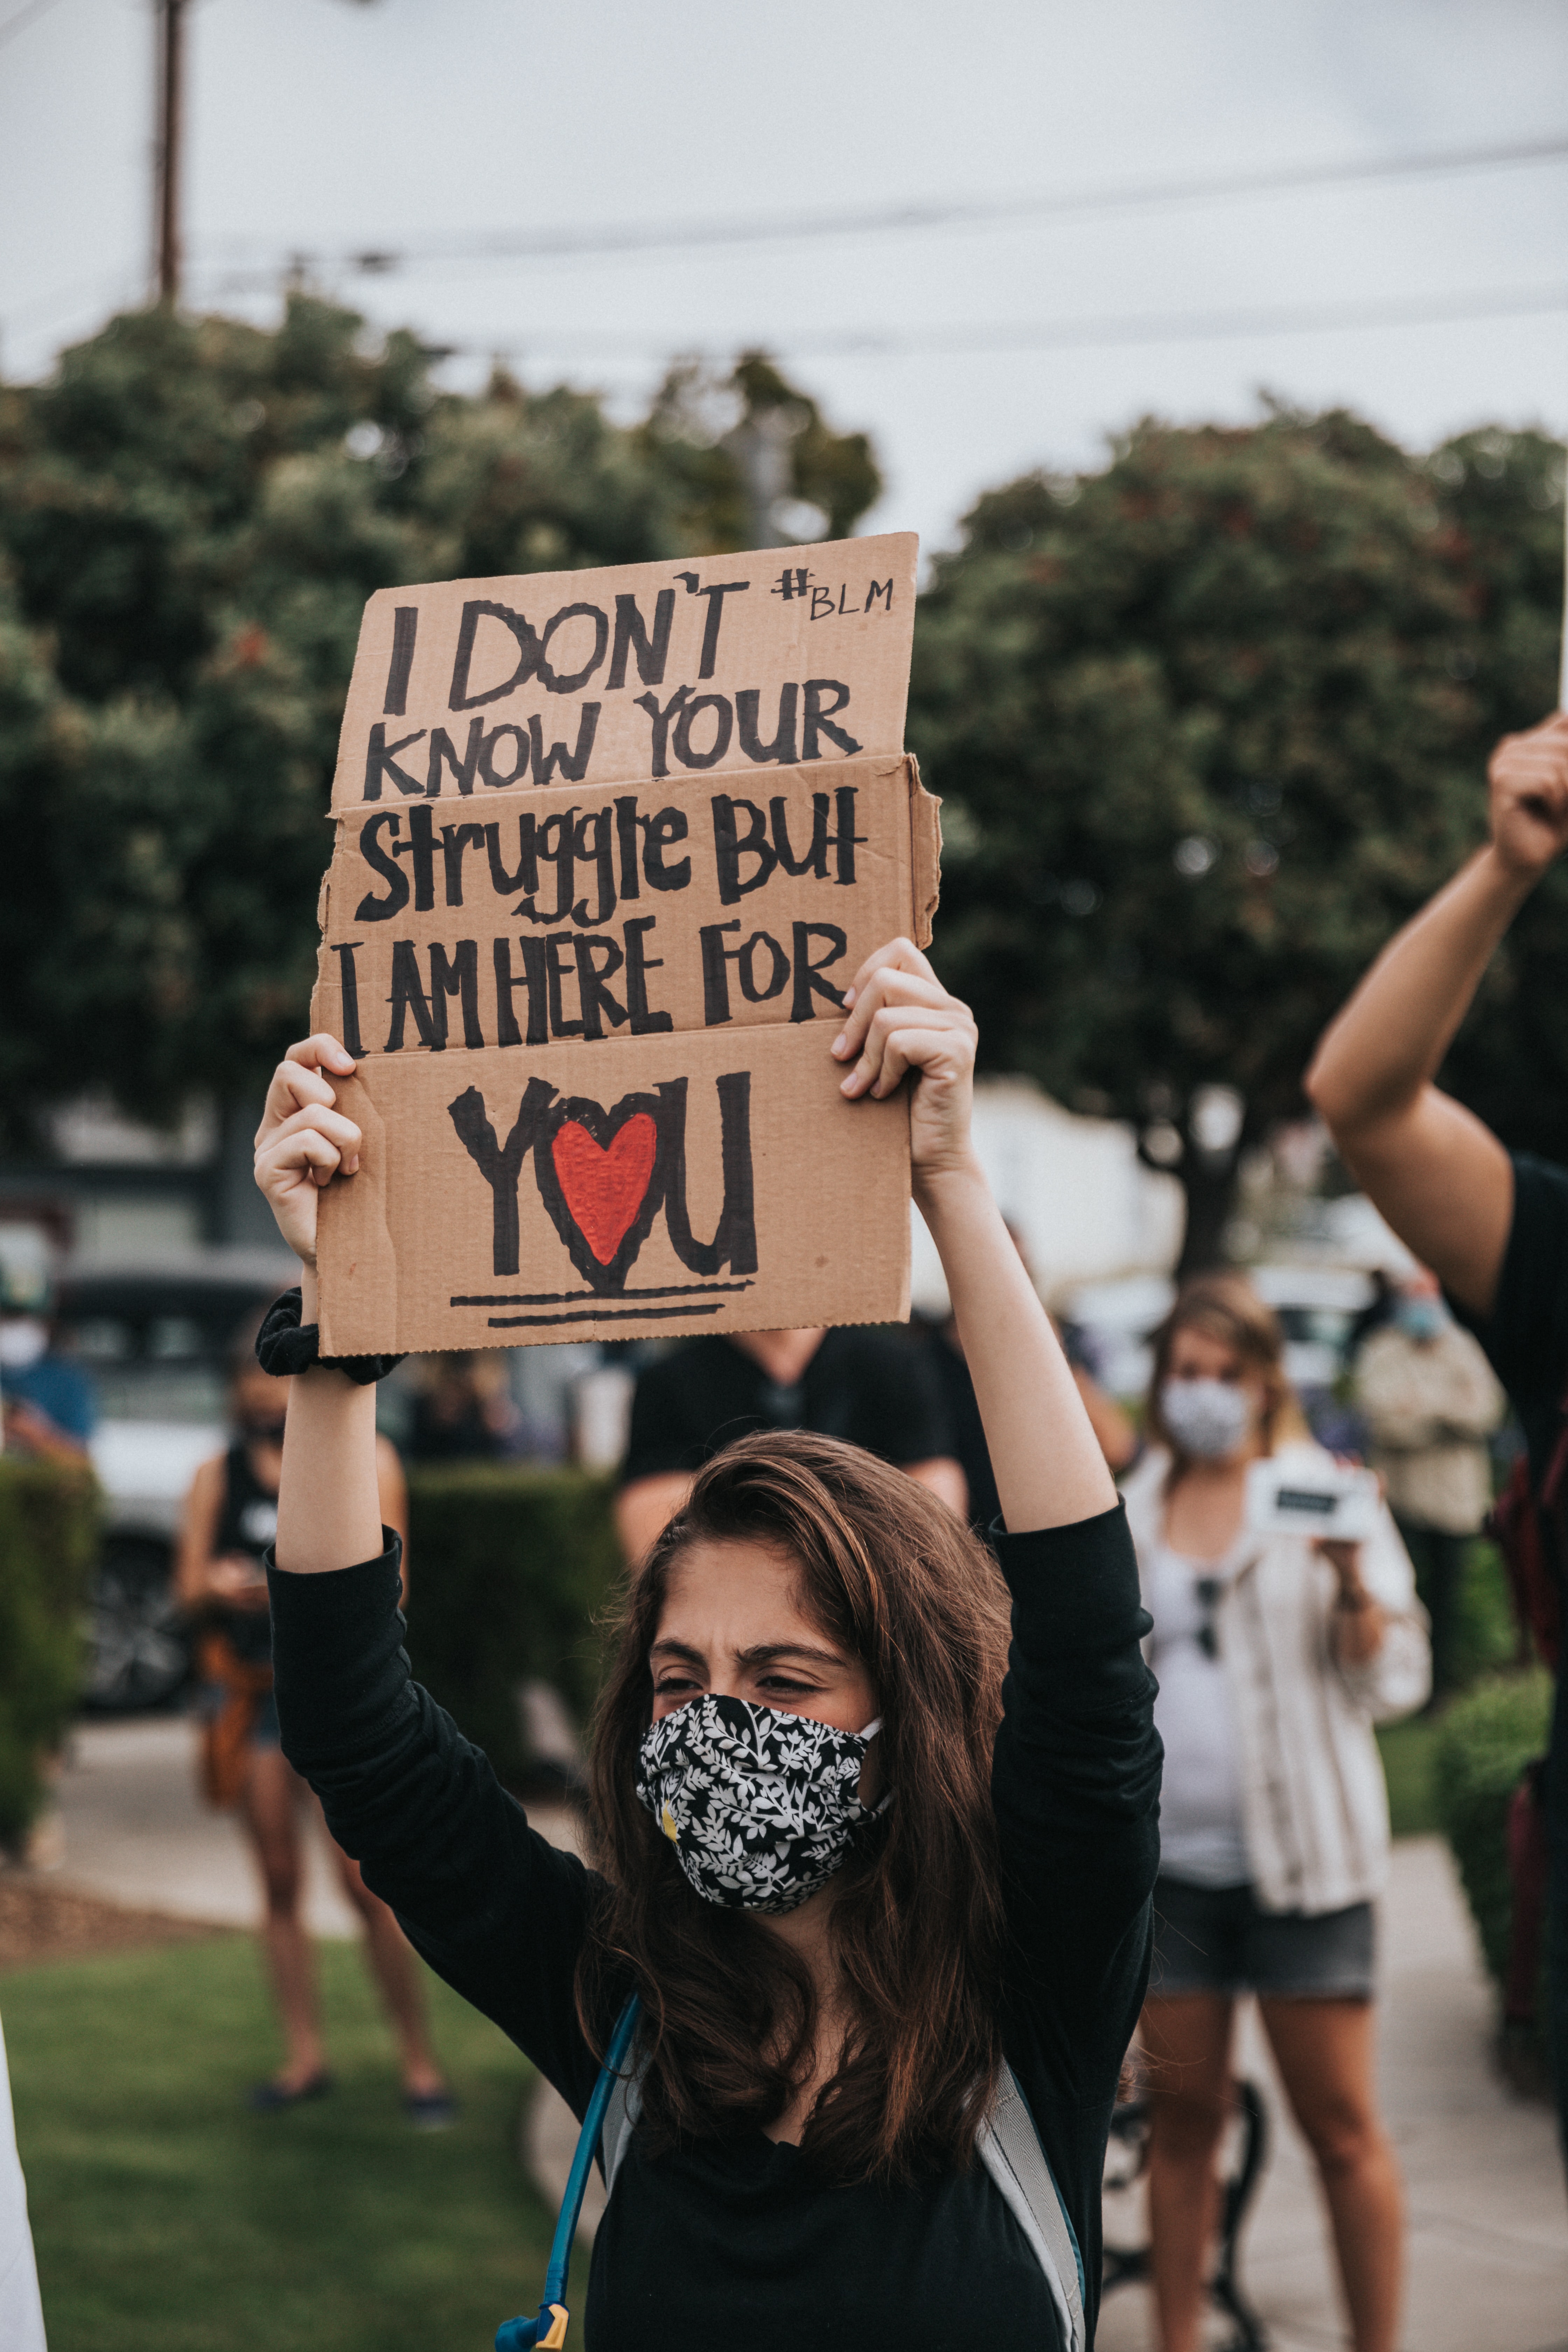 I DON'T #BLM
KNOW YOUR
Struggle BUt
I AM HERE FOR
YOU